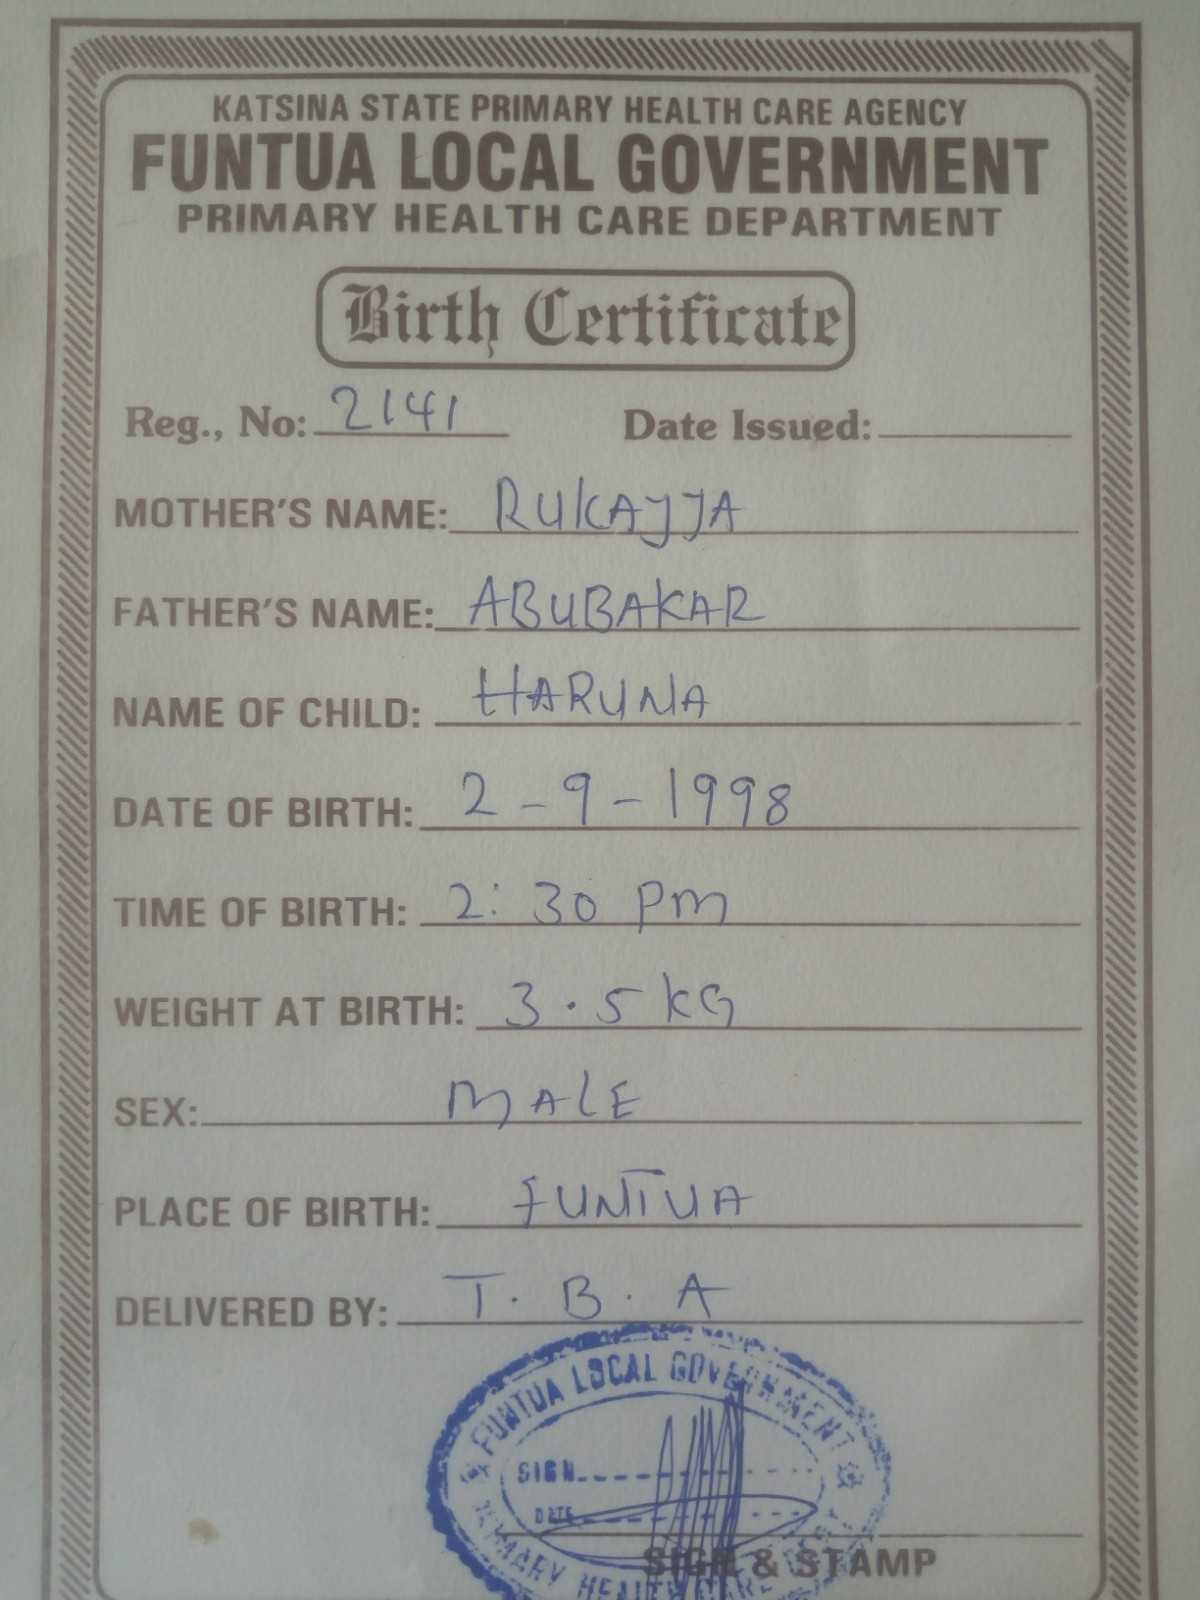 KATSINA STATE PRIMARY HEALTH CARE AGENCY
FUNTUA LOCAL GOVERNMENT
PRIMARY HEALTH CARE DEPARTMENT
Birth Certificate
Reg., No: 2141 Date Issued:
MOTHER'S NAME: RUKAJJA
FATHER'S NAME: ABUBAKAR
NAME OF CHILD: HARUNA
DATE OF BIRTH: 2-9-1998
TIME OF BIRTH: 2:30 pm
WEIGHT AT BIRTH: 3.5 KG
SEX: MALE
PLACE OF BIRTH: FUNTUA
DELIVERED BY: T.B.A
FUNTUA LOCAL GOVERNMENT
SIGN
DATE
PRIMARY HEALTH CARE DEPT
SIGN & STAMP